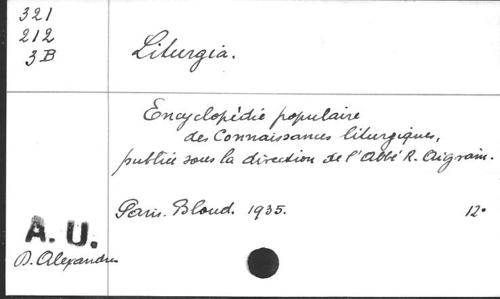 321
212
3B
Liturgia.
Encyclopédie populaire
des Connaissances liturgiques,
publiée sous la direction de l'Abbé R. Aigrain.
Paris. Bloud. 1935. 12°
A. U.
D. Alexandre